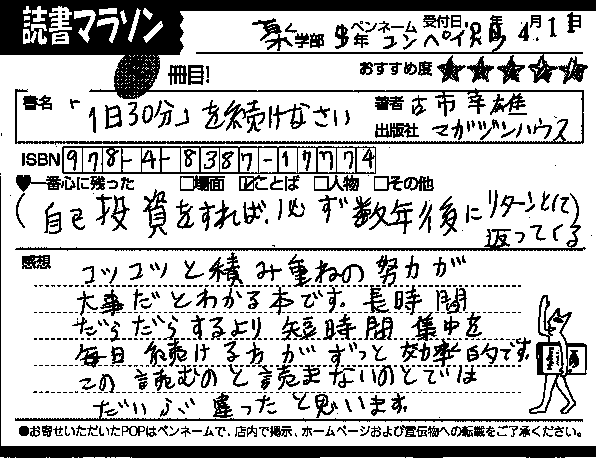 読書マラソン
薬学部 年 ペンネーム コンペイ 受付日 年 4月11日
冊目!
おすすめ度 ★★★★★
書名 「「1日30分」を続けなさい
著者 古市幸雄
出版社 マガジンハウス
ISBN 978-4-8387-1774
♥一番心に残った □場面 ☑ことば □人物 □その他
(自己投資をすれば、必ず数年後にリターンとして
返ってくる
感想 コツコツと積み重ねの努力が
大事だとわかる本です。長時間
だらだらするより短時間集中を
毎日続ける方がずっと効率的です。
この読むのと読まないのとでは
だいぶ違ったと思います。
●お寄せいただいたPOPはペンネームで、店内で掲示、ホームページおよび宣伝物への転載をご了承ください。